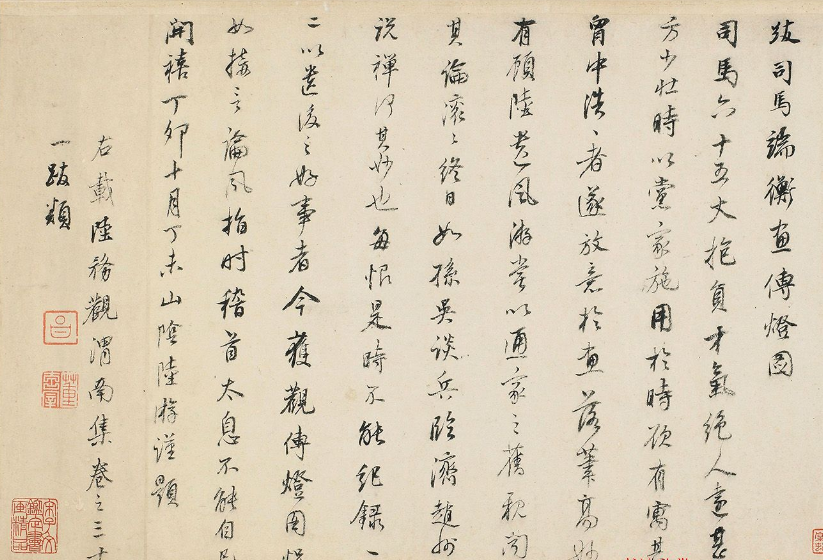 跋司馬端衡畫傳燈圖
司馬六十五丈抱負才氣絕人遠甚
方少壯時以黨家施用於時欲有寓其
胷中浩〻者遂放意於畫落筆高妙
有顧陸遺風游嘗以通家之舊親聞
其論滚〻終日如孫吳談兵臨濟趙州
説禪何其妙也每恨是時不能紀錄一
二以遺後之好事者今獲觀傳燈圖恍
如接言論風指时稽首太息不能自已
開禧丁卯十月丁未山陰陸游谨題
右載陸務觀渭南集卷之三十
一跋類